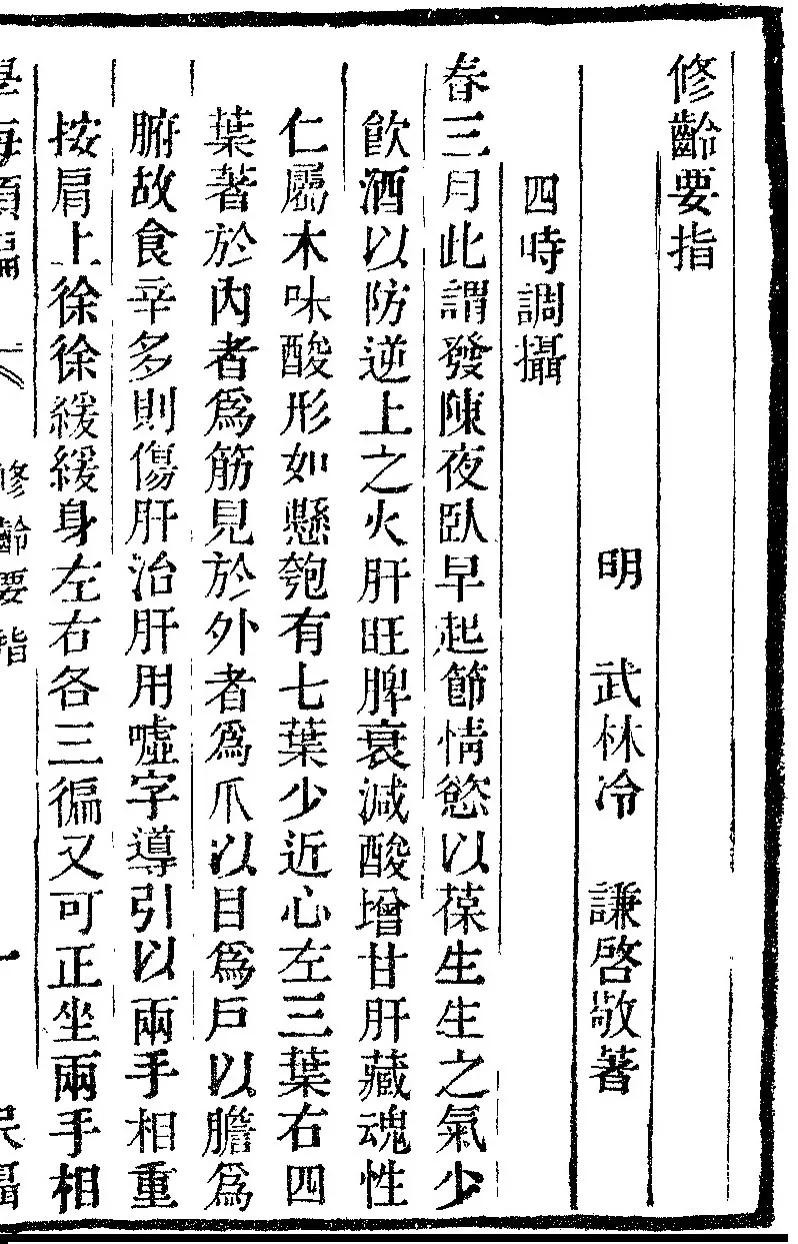 修齡要指
明 武林冷 謙啓敬著
四時調攝
春三月此謂發陳夜臥早起節情慾以葆生生之氣少
飲酒以防逆上之火肝旺脾衰減酸增甘肝藏魂性
仁屬木味酸形如懸匏有七葉少近心左三葉右四
葉著於內者爲筋見於外者爲爪以目爲戶以膽爲
腑故食辛多則傷肝治肝用噓字導引以兩手相重
按肩上徐徐緩緩身左右各三徧又可正坐兩手相
修齡要指 一